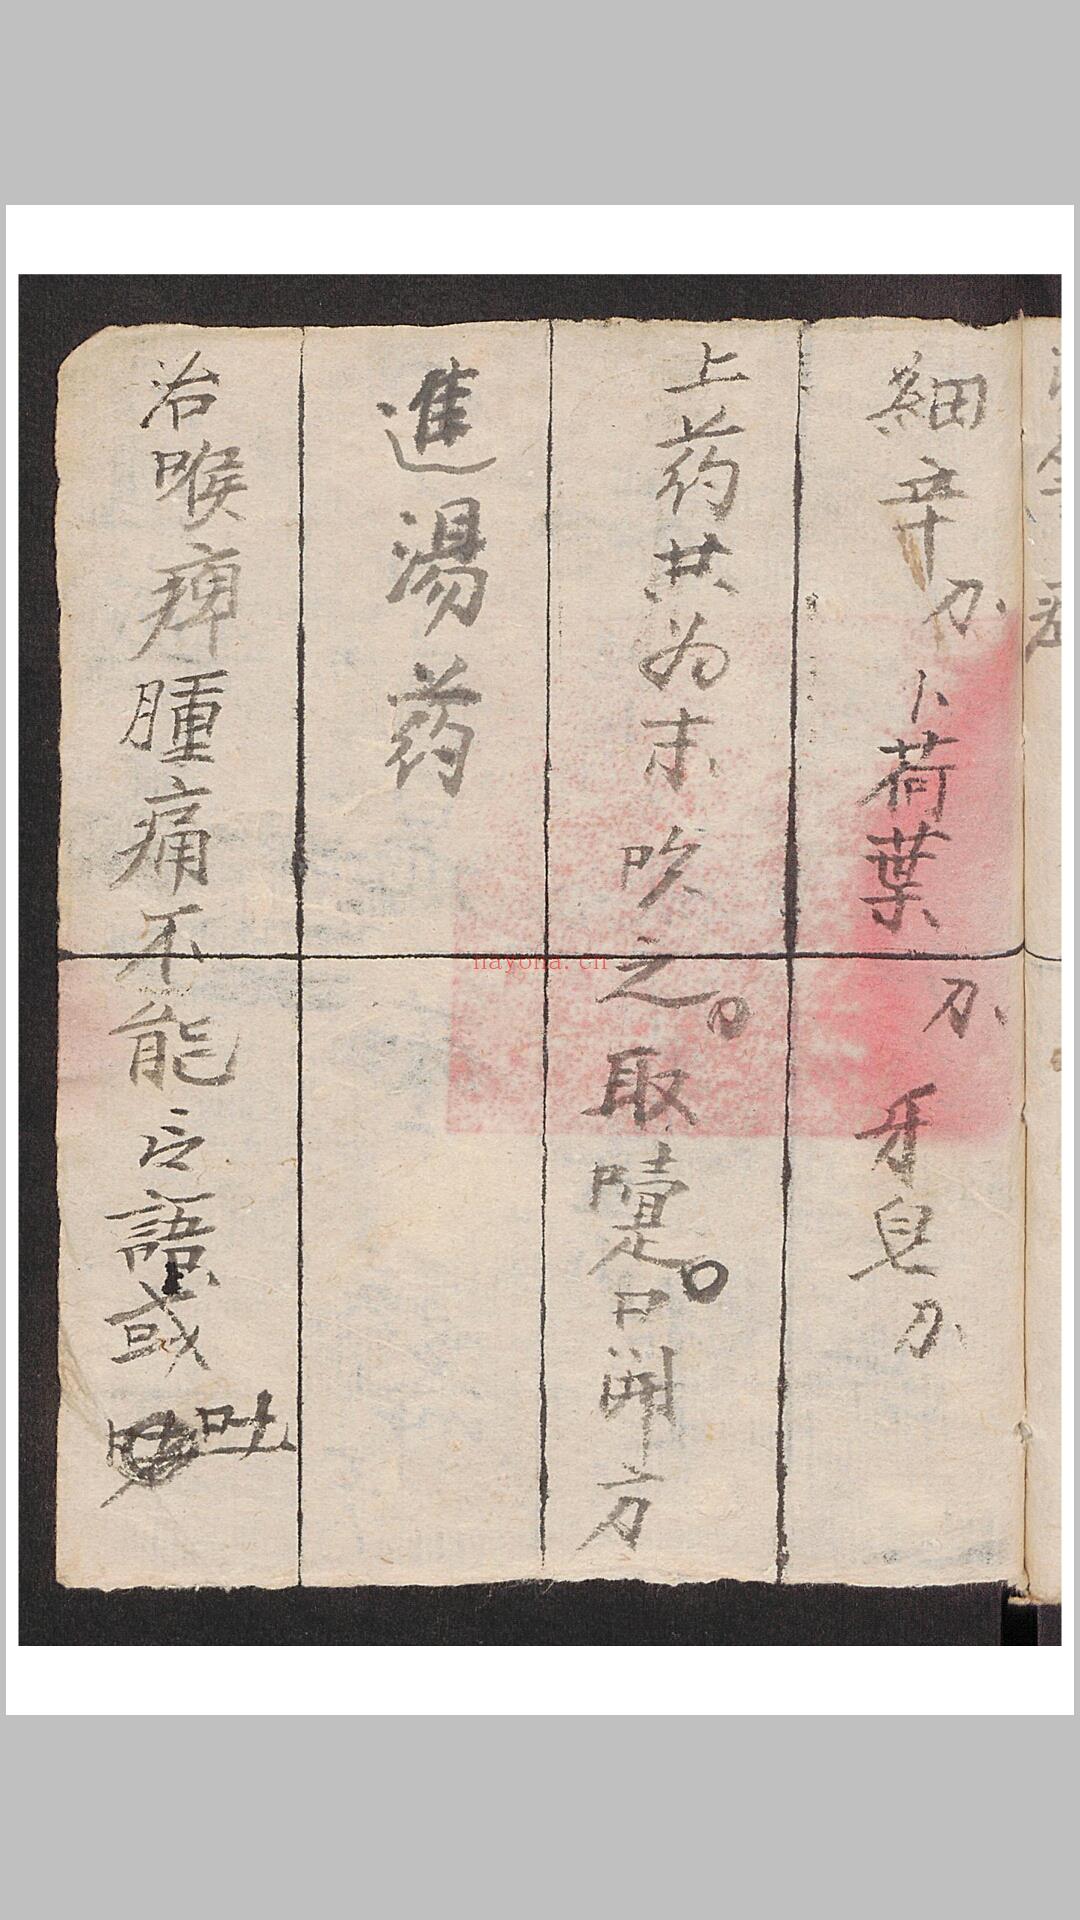 細辛 卜荷葉 牙皂
上药共为末吹之。取嚏。口開方
進湯药
治喉痺腫痛不能言語或吐
nayona.cn